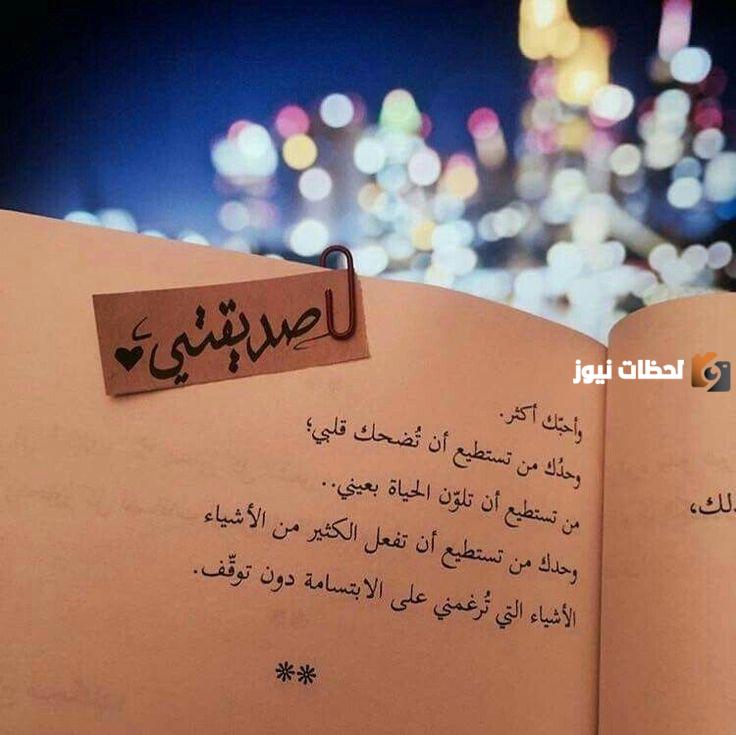 صديقتي
لحظات نيوز
وأحبّك أكثر.
وحدُك من تستطيع أن تُضحك قلبي؛
من تستطيع أن تلوّن الحياة بعيني..
وحدك من تستطيع أن تفعل الكثير من الأشياء
الأشياء التي تُرغمني على الابتسامة دون توقّف.
**